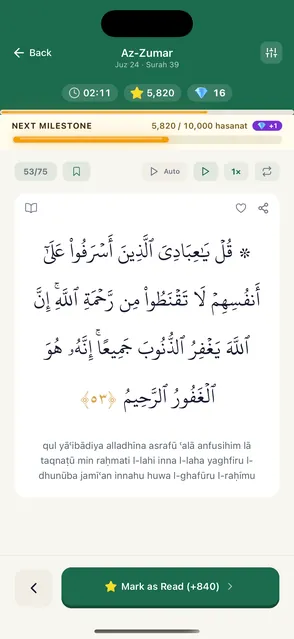 Back
Az-Zumar
Juz 24 · Surah 39
02:11
5,820
16
NEXT MILESTONE
5,820 / 10,000 hasanat
+1
53/75
Auto
1×
۞ قُلْ يَـٰعِبَادِىَ ٱلَّذِينَ أَسْرَفُوا۟ عَلَىٰٓ
أَنفُسِهِمْ لَا تَقْنَطُوا۟ مِن رَّحْمَةِ ٱللَّهِ ۚ إِنَّ
ٱللَّهَ يَغْفِرُ ٱلذُّنُوبَ جَمِيعًا ۚ إِنَّهُۥ هُوَ
ٱلْغَفُورُ ٱلرَّحِيمُ ﴿٥٣﴾
qul yāʿibādiya alladhīna asrafū ʿalā anfusihim lā
taqnaṭū min raḥmati l-lahi inna l-laha yaghfiru l-
dhunūba jamīʿan innahu huwa l-ghafūru l-raḥīmu
Mark as Read (+840)